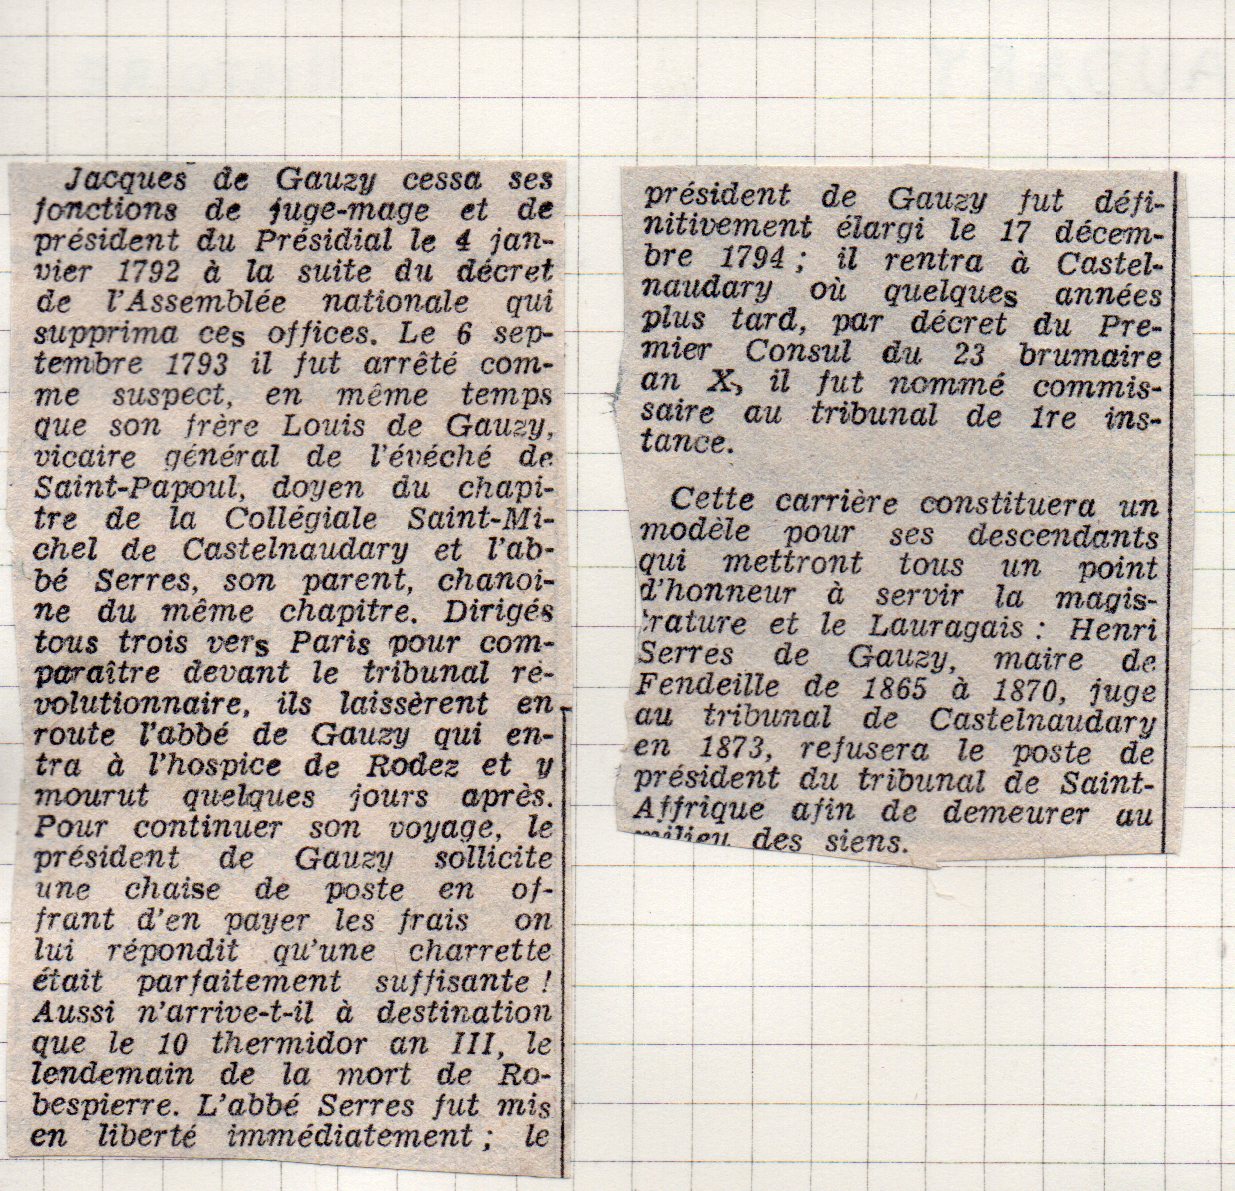 Jacques de Gauzy cessa ses
fonctions de juge-mage et de
président du Présidial le 4 jan-
vier 1792 à la suite du décret
de l'Assemblée nationale qui
supprima ces offices. Le 6 sep-
tembre 1793 il fut arrêté com-
me suspect, en même temps
que son frère Louis de Gauzy,
vicaire général de l'évéché de
Saint-Papoul, doyen du chapi-
tre de la Collégiale Saint-Mi-
chel de Castelnaudary et l'ab-
bé Serres, son parent, chanoi-
ne du même chapitre. Dirigés
tous trois vers Paris pour com-
paraître devant le tribunal ré-
volutionnaire, ils laissèrent en
route l'abbé de Gauzy qui en-
tra à l'hospice de Rodez et y
mourut quelques jours après.
Pour continuer son voyage, le
président de Gauzy sollicite
une chaise de poste en of-
frant d'en payer les frais on
lui répondit qu'une charrette
était parfaitement suffisante !
Aussi n'arrive-t-il à destination
que le 10 thermidor an III, le
lendemain de la mort de Ro-
bespierre. L'abbé Serres fut mis
en liberté immédiatement ; le
président de Gauzy fut défi-
nitivement élargi le 17 décem-
bre 1794 ; il rentra à Castel-
naudary où quelques années
plus tard, par décret du Pre-
mier Consul du 23 brumaire
an X, il fut nommé commis-
saire au tribunal de 1re ins-
tance.
Cette carrière constituera un
modèle pour ses descendants
qui mettront tous un point
d'honneur à servir la magis-
trature et le Lauragais : Henri
Serres de Gauzy, maire de
Fendeille de 1865 à 1870, juge
au tribunal de Castelnaudary
en 1873, refusera le poste de
président du tribunal de Saint-
Affrique afin de demeurer au
milieu des siens.